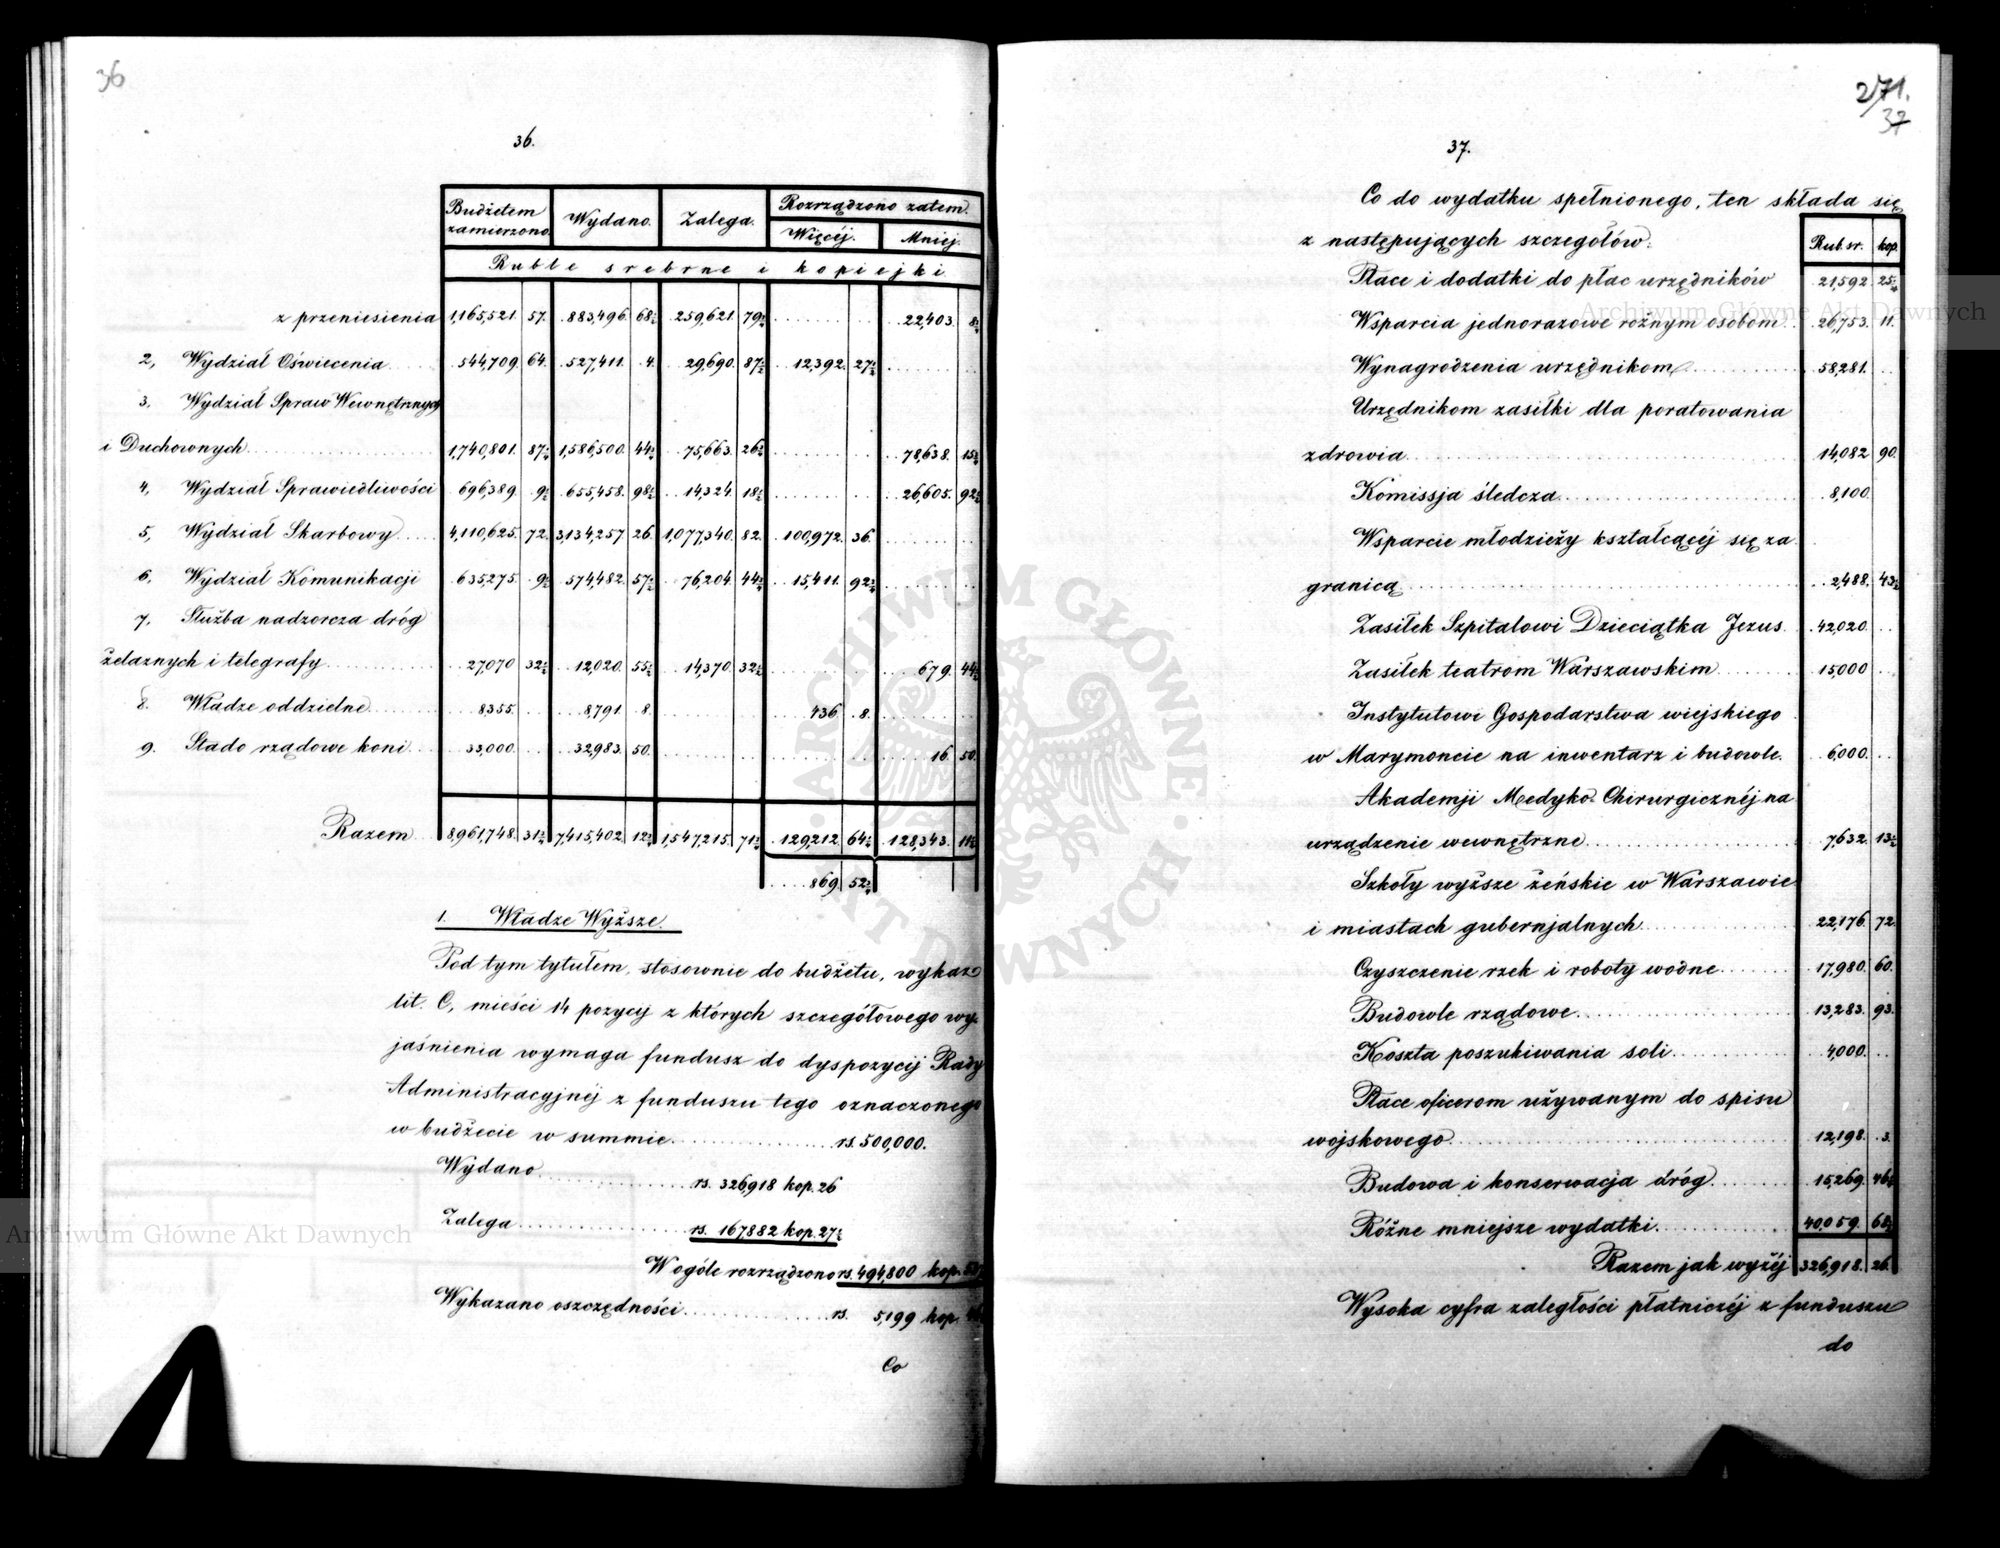 36
36.
Budżetem zamierzono. Wydano. Zalega. Rozrządzono zatem.
Więcéj. Mniéj.
Ruble srebrne i kopiejki
z przeniesienia 1,165,521. 57. 883,496. 68½ 259,621. 79½ 22,403. 8½
2, Wydział Oświecenia 544,709. 64. 527,411. 4. 29,690. 87½ 12,392. 27½
3. Wydział Spraw Wewnętrznych
i Duchownych 1,740,801. 87½ 1,586,500. 44½ 75,663. 26½ 78,638. 15½
4, Wydział Sprawiedliwości 696,389. 9½ 655,458. 98½ 14,324. 18½ 26,605. 92½
5, Wydział Skarbowy 4,110,625. 72. 3,134,257. 26. 1,077,340. 82. 100,972. 36.
6. Wydział Komunikacji 635,275. 9½ 574,482. 57½ 76,204. 44½ 15,411. 92½
7. Służba nadzorcza dróg
żelaznych i telegrafy 27,070 32½ 12,020. 55½ 14,370 32½ 679. 44½
8. Władze oddzielne 8,355. 8,791. 8. 436 8.
9. Stado rządowe koni 33,000. 32,983. 50. 16. 50.
Razem 8,961,748. 31½ 7,415,402. 12½ 1,547,215. 71½ 129,212. 64½ 128,343. 11½
869 52½
1. Władze Wyższe.
Pod tym tytułem, stosownie do budżetu, wykaz
lit. C, mieści 14 pozycij z których szczegółowego wy-
jaśnienia wymaga fundusz do dyspozycij Rady
Administracyjnéj z funduszu tego oznaczonego
w budżecie w summie rs. 500,000.
Wydano rs. 326,918 kop. 26
Zalega rs. 167,882 kop. 27½
W ogóle rozrządzono rs. 494,800 kop. 53½
Wykazano oszczędności rs. 5,199 kop.
Co
271.
37
37.
Co do wydatku spełnionego, ten składa się
z następujących szczegółów: Rub. sr. kop.
Płace i dodatki do płac urzędników 21,592. 25½
Wsparcia jednorazowe rożnym osobom 26,753. 11.
Wynagrodzenia urzędnikom 58,281.
Urzędnikom zasiłki dla poratowania
zdrowia 14,082 90.
Komissja śledcza 8,100.
Wsparcie młodzieży kształcącéj się za
granicą 2,488. 43½
Zasiłek Szpitalowi Dzieciątka Jezus 42,020.
Zasiłek teatrom Warszawskim 15,000
Instytutowi Gospodarstwa wiejskiego
w Marymoncie na inwentarz i budowle. 6,000.
Akademji Medyko-Chirurgicznéj na
urządzenie wewnętrzne 7,632. 13½
Szkoły wyższe żeńskie w Warszawie
i miastach gubernjalnych 22,176. 72.
Czyszczenie rzek i roboty wodne 17,980. 60.
Budowle rządowe 13,283. 93.
Koszta poszukiwania soli 4,000.
Płace oficerom używanym do spisu
wojskowego 12,198. 3.
Budowa i konserwacja dróg 15,269. 46½
Różne mniejsze wydatki. 40,059. 68½
Razem jak wyżéj 326,918. 26.
Wysoka cyfra zaległości płatniczéj z funduszu
do
Archiwum Główne Akt Dawnych
Archiwum Główne Akt Dawnych
ARCHIWUM GŁÓWNE AKT DAWNYCH